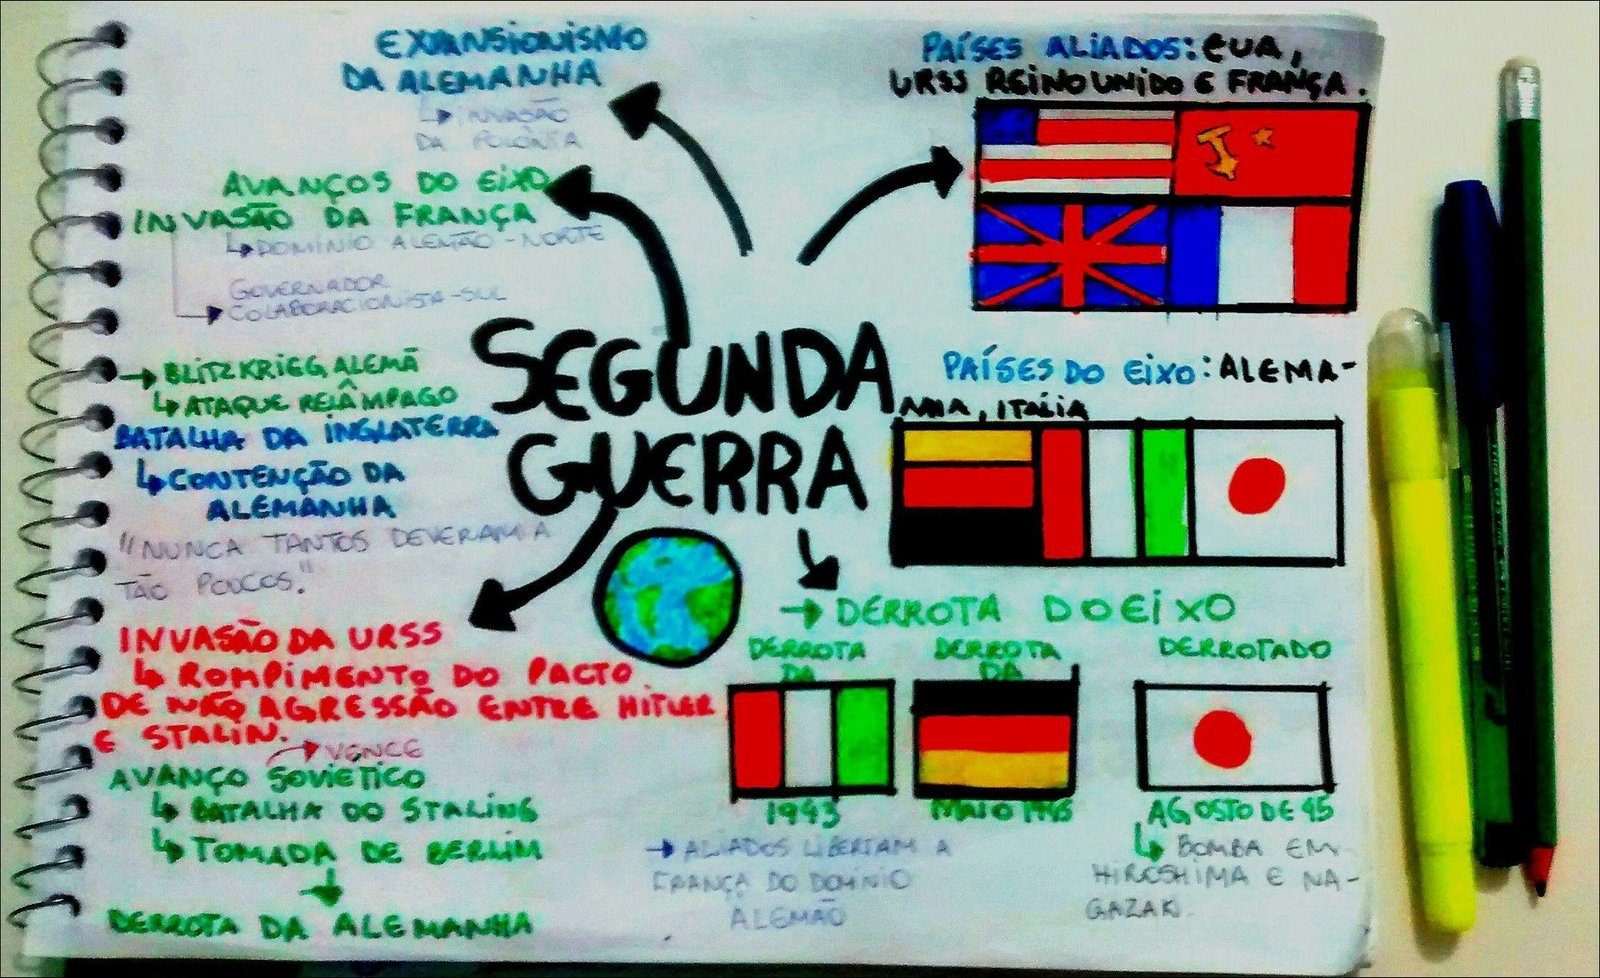 EXPANSIONISMO
DA ALEMANHA
INVASÃO
DA POLÔNIA
AVANÇOS DO EIXO
INVASÃO DA FRANÇA
DOMÍNIO ALEMÃO - NORTE
GOVERNADOR
COLABORACIONISTA - SUL
BLITZKRIEG ALEMÃ
ATAQUE RELÂMPAGO
BATALHA DA INGLATERRA
CONTENÇÃO DA
ALEMANHA
"NUNCA TANTOS DEVERAM A
TÃO POUCOS."
INVASÃO DA URSS
ROMPIMENTO DO PACTO
DE NÃO AGRESSÃO ENTRE HITLER
E STALIN.
VENCE
AVANÇO SOVIÉTICO
BATALHA DO STALING
TOMADA DE BERLIM
DERROTA DA ALEMANHA
SEGUNDA
GUERRA
PAÍSES ALIADOS: EUA,
URSS REINO UNIDO E FRANÇA.
PAÍSES DO EIXO: ALEMA-
NHA, ITÁLIA
DERROTA DO EIXO
DERROTA
DA
1943
DERROTA
DA
MAIO 1945
DERROTADO
AGOSTO DE 45
ALIADOS LIBERTAM A
FRANÇA DO DOMÍNIO
ALEMÃO
BOMBA EM
HIROSHIMA E NA-
GAZAKI.